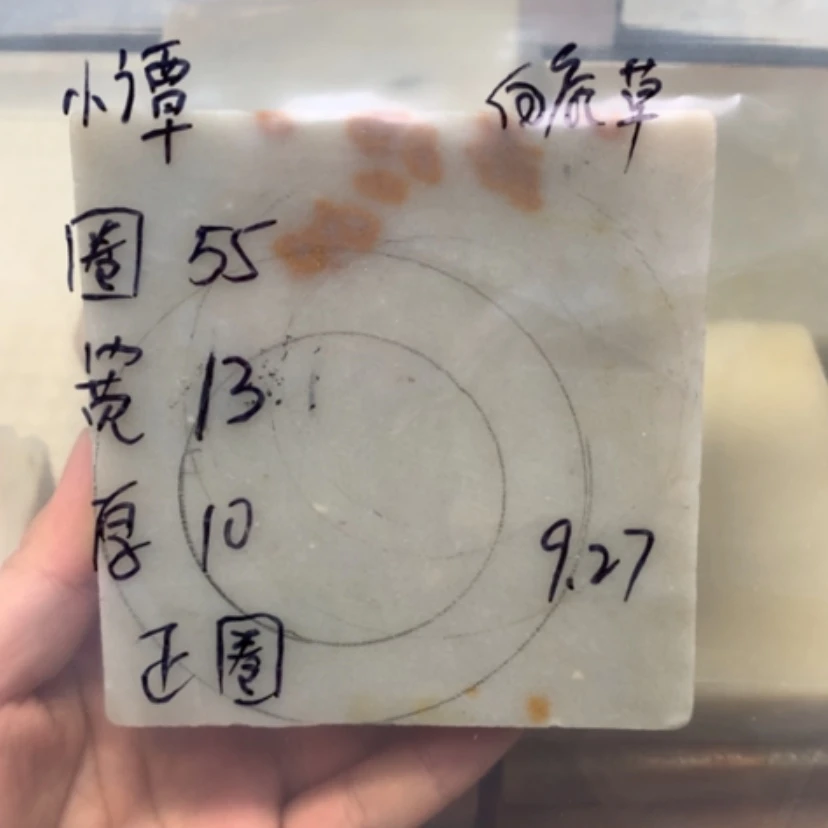 小谭
草
圈 55
宽 13
厚 10
9.27
正圈